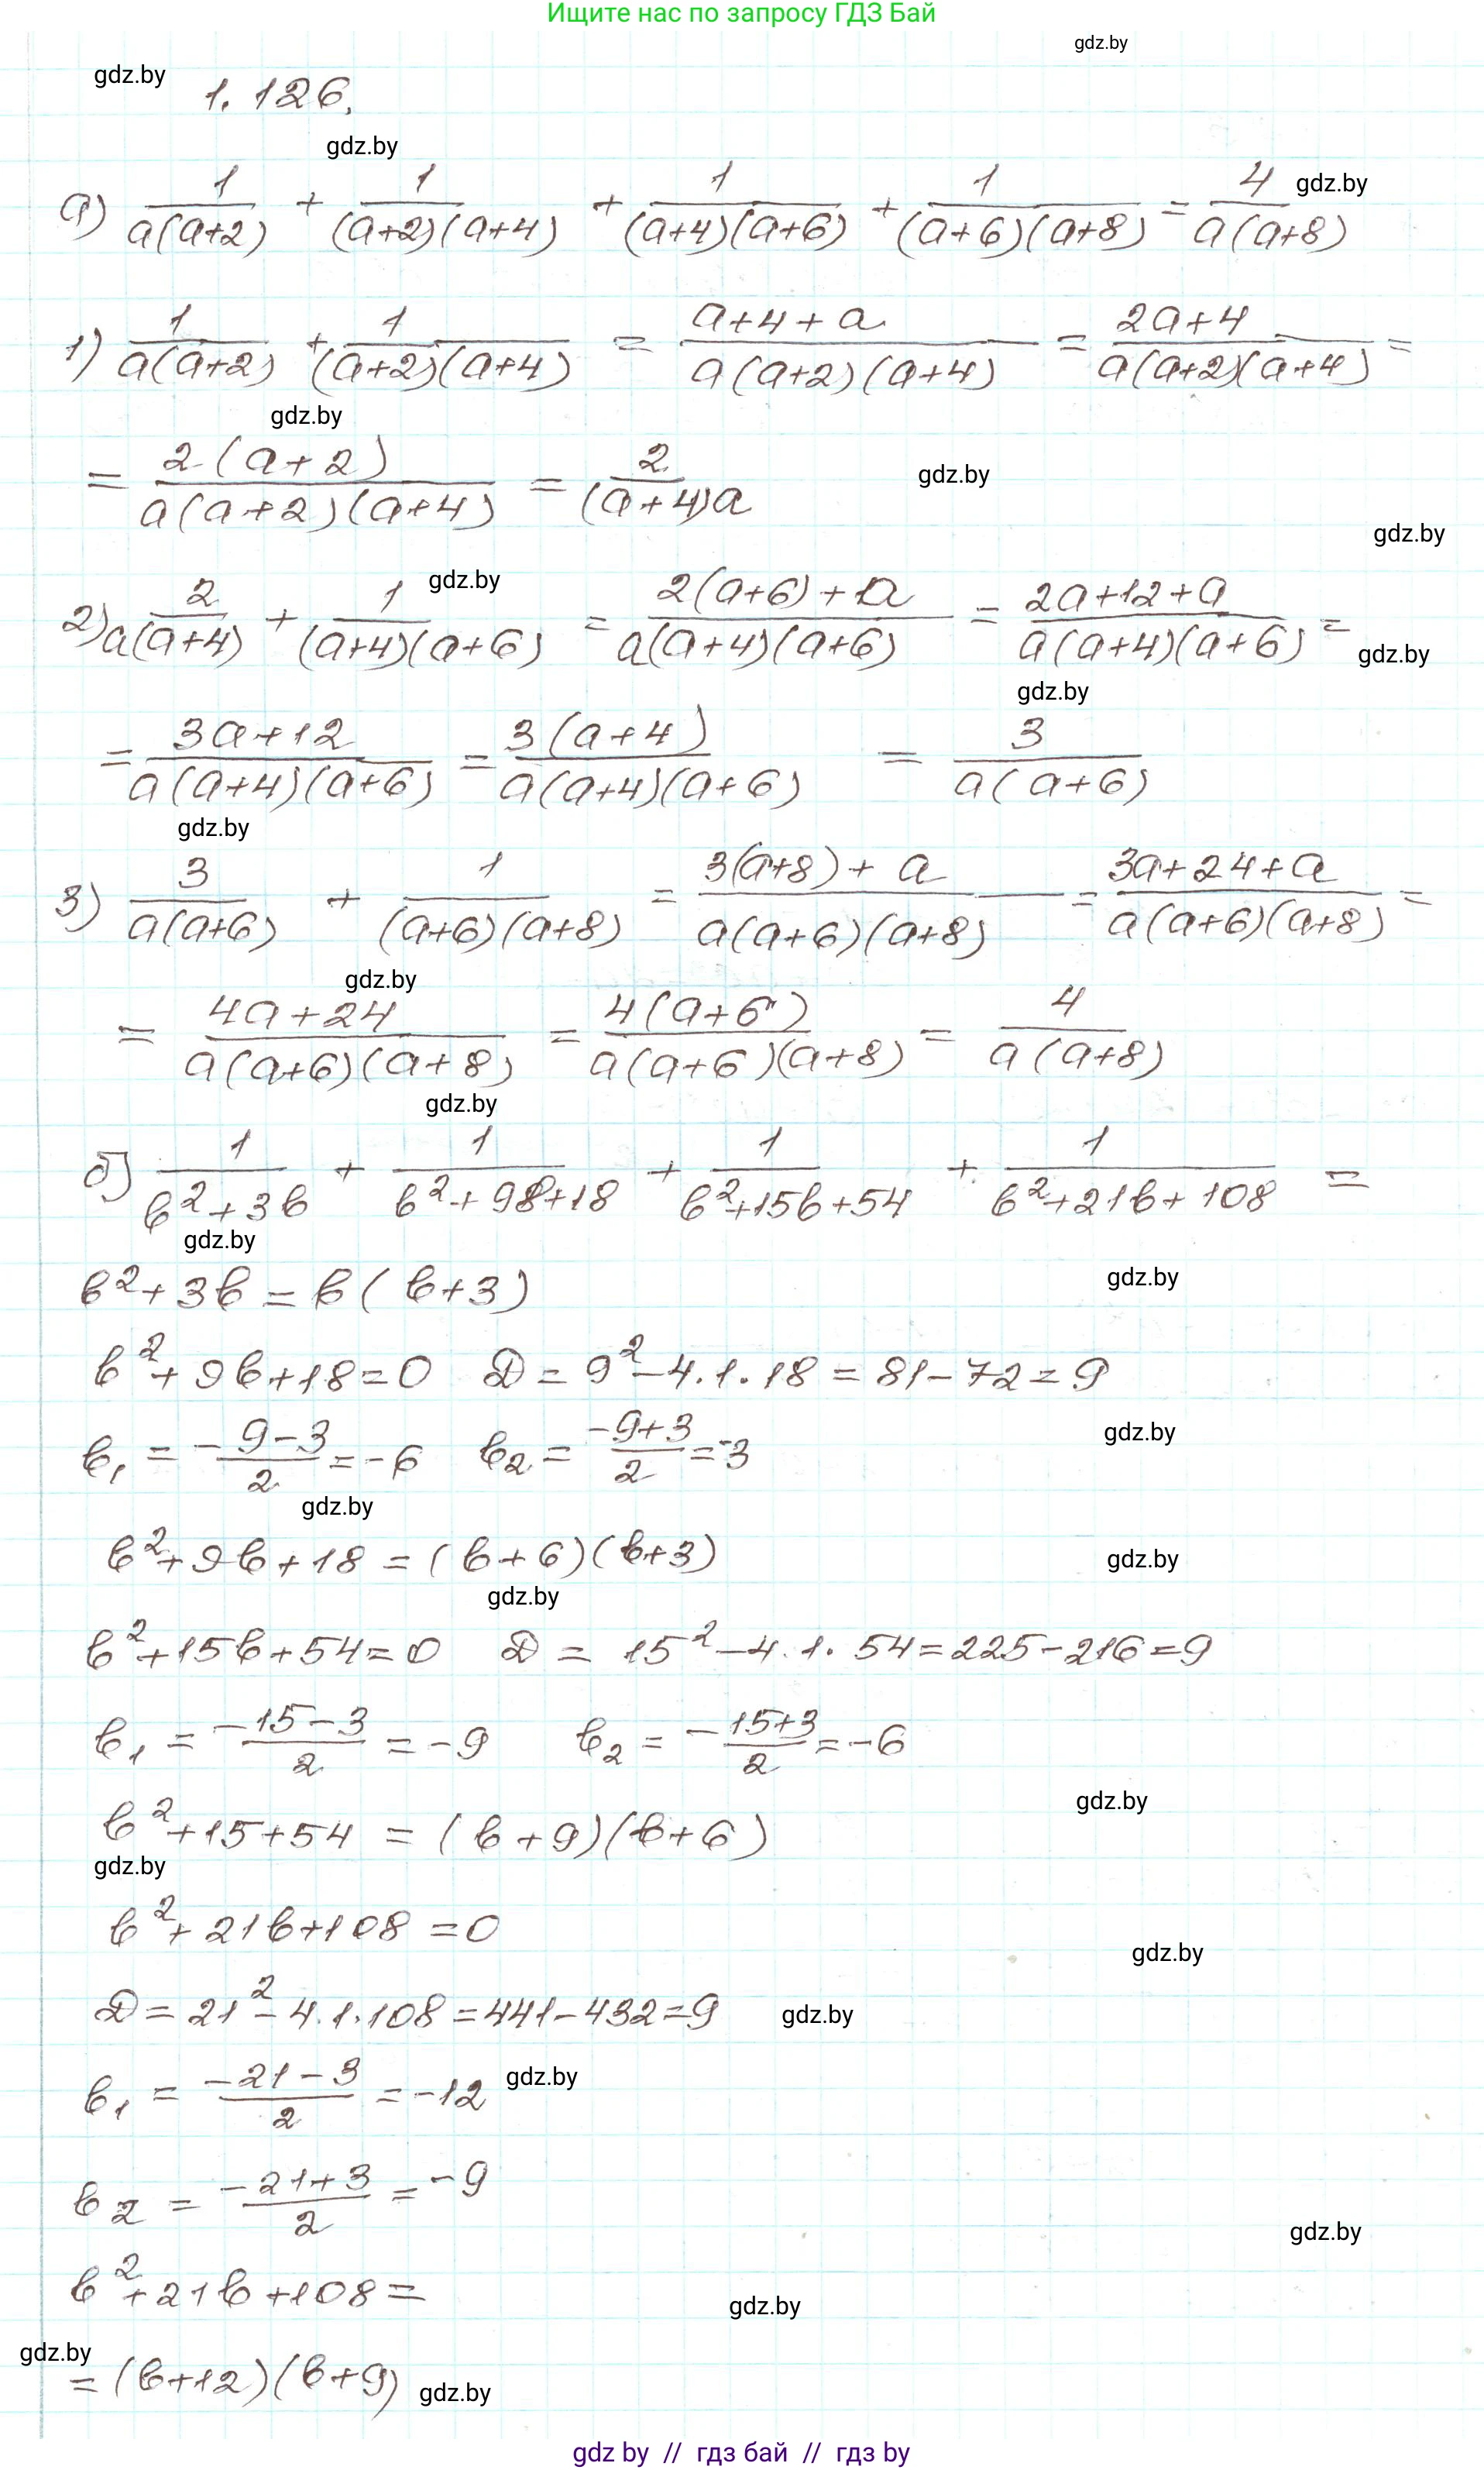 Ищите нас по запросу ГДЗ Бай
gdz.by
gdz.by
1.126.
gdz.by
а) 1/(a(a+2)) + 1/((a+2)(a+4)) + 1/((a+4)(a+6)) + 1/((a+6)(a+8)) = 4/(a(a+8))
gdz.by
1) 1/(a(a+2)) + 1/((a+2)(a+4)) = (a+4+a)/(a(a+2)(a+4)) = (2a+4)/(a(a+2)(a+4)) =
gdz.by
= 2(a+2)/(a(a+2)(a+4)) = 2/((a+4)a)
gdz.by
gdz.by
gdz.by
2) 2/(a(a+4)) + 1/((a+4)(a+6)) = (2(a+6)+a)/(a(a+4)(a+6)) = (2a+12+a)/(a(a+4)(a+6)) =
gdz.by
gdz.by
= (3a+12)/(a(a+4)(a+6)) = 3(a+4)/(a(a+4)(a+6)) = 3/(a(a+6))
gdz.by
3) 3/(a(a+6)) + 1/((a+6)(a+8)) = (3(a+8)+a)/(a(a+6)(a+8)) = (3a+24+a)/(a(a+6)(a+8)) =
gdz.by
= (4a+24)/(a(a+6)(a+8)) = 4(a+6)/(a(a+6)(a+8)) = 4/(a(a+8))
gdz.by
б) 1/(b²+3b) + 1/(b²+9b+18) + 1/(b²+15b+54) + 1/(b²+21b+108) =
gdz.by
b²+3b = b(b+3)
gdz.by
b²+9b+18=0 D = 9²-4·1·18 = 81-72 = 9
b₁ = (-9-3)/2 = -6 b₂ = (-9+3)/2 = -3
gdz.by
gdz.by
b²+9b+18 = (b+6)(b+3)
gdz.by
gdz.by
b²+15b+54=0 D = 15²-4·1·54=225-216=9
b₁ = (-15-3)/2 = -9 b₂ = (-15+3)/2 = -6
gdz.by
b²+15+54 = (b+9)(b+6)
gdz.by
b²+21b+108 = 0
gdz.by
D = 21²-4·1·108 = 441-432=9
gdz.by
b₁ = (-21-3)/2 = -12
gdz.by
b₂ = (-21+3)/2 = -9
gdz.by
b²+21b+108 =
gdz.by
gdz.by
= (b+12)(b+9)
gdz.by
gdz by // гдз бай // гдз by